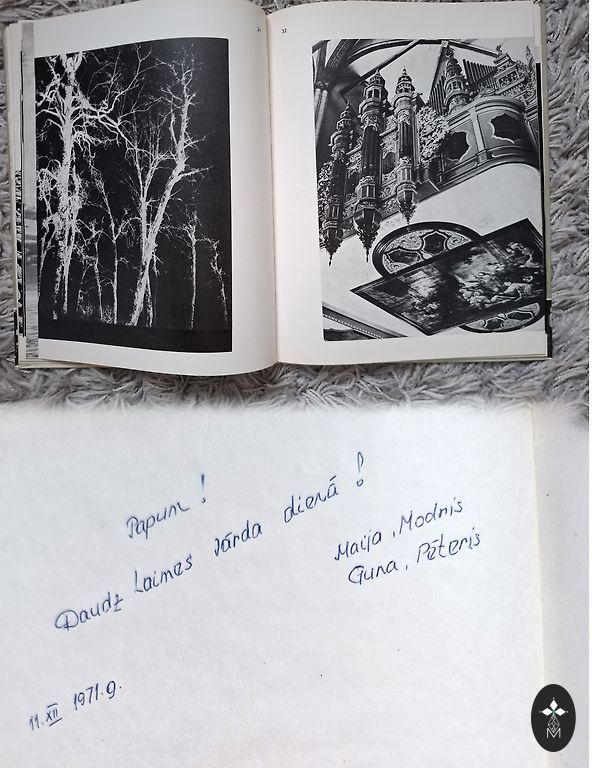 32
Papum!
Daudz Laimes vārda dienā!
Maija, Modris
Guna, Pēteris
11. XII 1971.g.
M